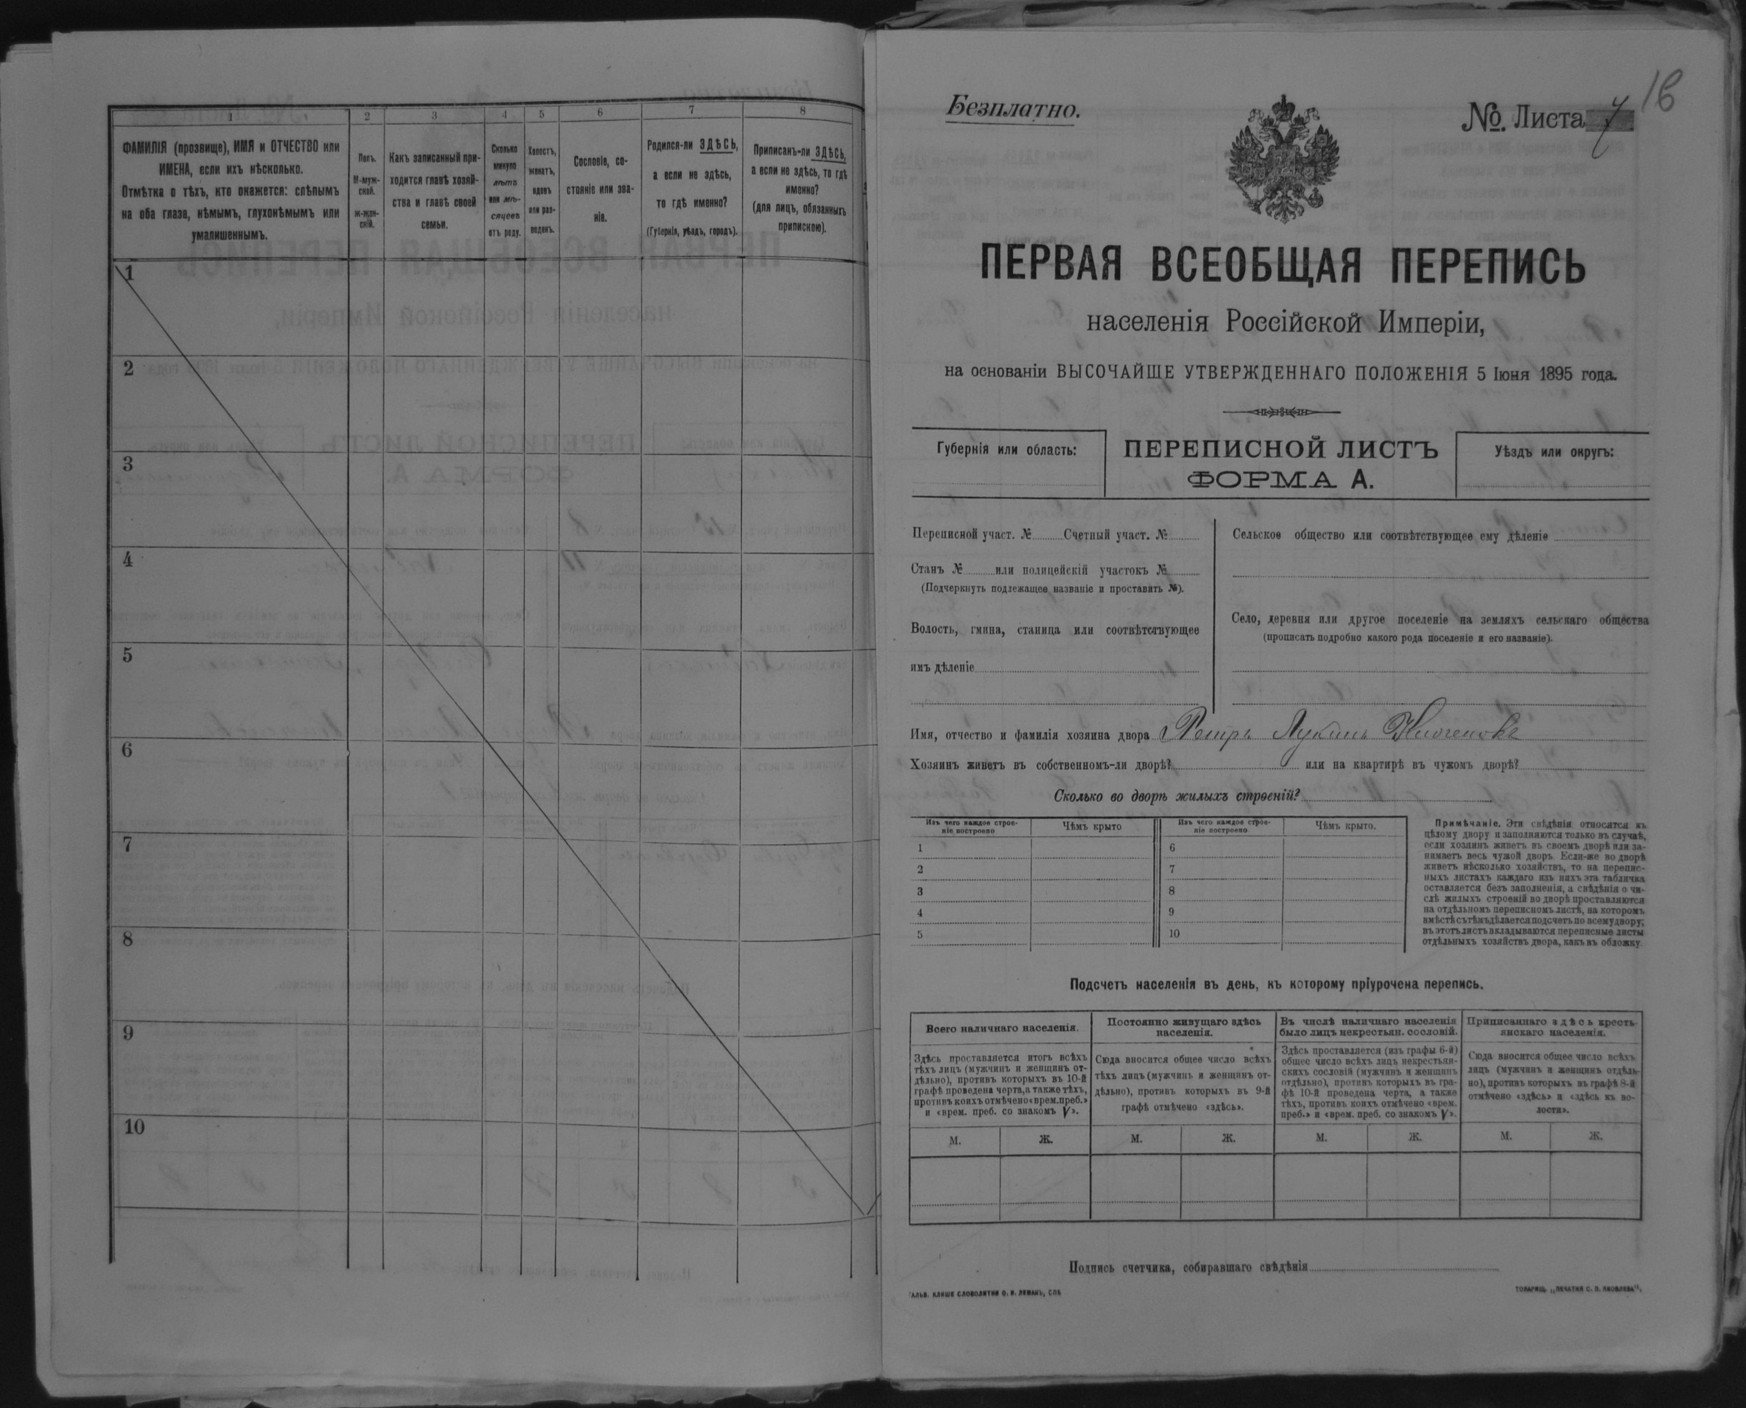 1
2
3
4
5
6
7
8
ФАМИЛІЯ (прозвище), ИМЯ и ОТЧЕСТВО или
ИМЕНА, если ихъ нѣсколько.
Отмѣтка о тѣхъ, кто окажется: слѣпымъ
на оба глаза, нѣмымъ, глухонѣмымъ или
умалишеннымъ.
Полъ.
М-муж-
ской.
ж-жен-
скій.
Какъ записанный при-
ходится главѣ хозяй-
ства и главѣ своей
семьи.
Сколько
минуло
лѣтъ
или мѣ-
сяцевъ
отъ роду.
Холостъ,
женатъ,
вдовъ
или раз-
веденъ.
Сословіе, со-
стояніе или зва-
ніе.
Родился-ли ЗДѢСЬ,
а если не здѣсь,
то гдѣ именно?
(Губернія, уѣздъ, городъ).
Приписанъ-ли ЗДѢСЬ,
а если не здѣсь, то гдѣ
именно?
(для лицъ, обязанныхъ
припискою).
1
2
3
4
5
6
7
8
9
10
16
Безплатно.
№ Листа
ПЕРВАЯ ВСЕОБЩАЯ ПЕРЕПИСЬ
населенія Россійской Имперіи,
на основаніи ВЫСОЧАЙШЕ УТВЕРЖДЕННАГО ПОЛОЖЕНІЯ 5 Іюня 1895 года.
Губернія или область:
ПЕРЕПИСНОЙ ЛИСТЪ
ФОРМА А.
Уѣздъ или округъ:
Переписной участ. № Счетный участ. №
Станъ № или полицейскій участокъ №
(Подчеркнуть подлежащее названіе и проставить №).
Волость, гмина, станица или соотвѣтствующее
имъ дѣленіе
Сельское общество или соотвѣтствующее ему дѣленіе
Село, деревня или другое поселеніе на земляхъ сельскаго общества
(прописать подробно какого рода поселеніе и его названіе).
Имя, отчество и фамилія хозяина двора Петръ Лукинъ
Хозяинъ живетъ въ собственномъ-ли дворѣ? или на квартирѣ въ чужомъ дворѣ?
Сколько во дворѣ жилыхъ строеній?
Изъ чего каждое строе-
ніе построено
Чѣмъ крыто
Изъ чего каждое строе-
ніе построено
Чѣмъ крыто.
1
2
3
4
5
6
7
8
9
10
Примѣчаніе. Эти свѣдѣнія относятся къ
цѣлому двору и заполняются только въ случаѣ,
если хозяинъ живетъ въ своемъ дворѣ или за-
нимаетъ весь чужой дворъ. Если-же во дворѣ
живетъ нѣсколько хозяйствъ, то на перепис-
ныхъ листахъ каждаго изъ нихъ эта табличка
оставляется безъ заполненія, а свѣдѣнія о чи-
слѣ жилыхъ строеній во дворѣ проставляются
на отдѣльномъ переписномъ листѣ, на которомъ
вмѣстѣ съ тѣмъ дѣлается подсчетъ по всему двору;
въ этотъ листъ вкладываются переписные листы
отдѣльныхъ хозяйствъ двора, какъ въ обложку
Подсчетъ населенія въ день, къ которому пріурочена перепись.
Всего наличнаго населенія.
Здѣсь проставляется итогъ всѣхъ
тѣхъ лицъ (мужчинъ и женщинъ от-
дѣльно), противъ которыхъ въ 10-й
графѣ проведена черта, а также тѣхъ,
противъ коихъ отмѣчено «врем. преб.»
и «врем. преб. со знакомъ V».
Постоянно живущаго здѣсь
населенія.
Сюда вносится общее число всѣхъ
тѣхъ лицъ (мужчинъ и женщинъ от-
дѣльно), противъ которыхъ въ 9-й
графѣ отмѣчено «здѣсь».
Въ числѣ наличнаго населенія
было лицъ некрестьян. сословій.
Здѣсь проставляется (изъ графы 6-й)
общее число всѣхъ лицъ некрестьян-
скихъ сословій (мужчинъ и женщинъ
отдѣльно), противъ которыхъ въ гра-
фѣ 10-й проведена черта, а также
тѣхъ, противъ коихъ отмѣчено «врем.
преб.» и «врем. преб. со знакомъ V».
Приписаннаго здѣсь кресть-
янскаго населенія.
Сюда вносится общее число всѣхъ
лицъ (мужчинъ и женщинъ отдѣль-
но), противъ которыхъ въ графѣ 8-й
отмѣчено «здѣсь» и «здѣсь въ во-
лости».
М. Ж. М. Ж. М. Ж. М. Ж.
Подпись счетчика, собиравшаго свѣдѣнія
ГАЛЬВ. КЛИШЕ СЛОВОЛИТНИ О. И. ЛЕМАНЪ, СПБ
ТОВАРИЩ. „ПЕЧАТНЯ С. П. ЯКОВЛЕВА".